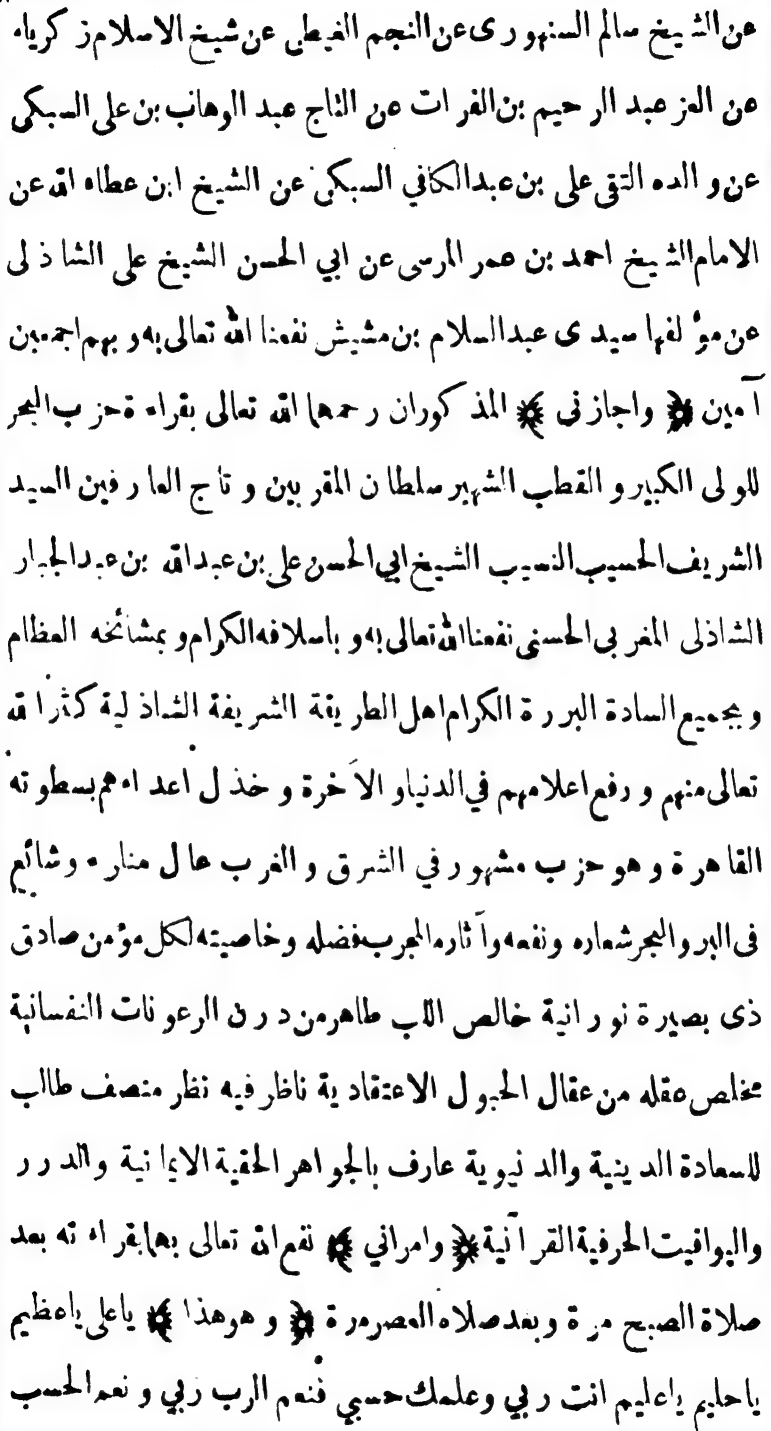 عن الشيخ سالم السنهوري عن النجم الغيطي عن شيخ الاسلام زكرياء
عن العز عبد الرحيم بن الفرات عن التاج عبد الوهاب بن علي السبكي
عن والده التقي علي بن عبدالكافي السبكي عن الشيخ ابن عطاء الله عن
الامام الشيخ احمد بن عمر المرسي عن ابي الحسن الشيخ علي الشاذلي
عن مؤلفها سيدي عبدالسلام بن مشيش نفعنا الله تعالى به وبهم اجمعين
آمين ﴿ واجازني ﴾ المذكوران رحمهما الله تعالى بقراءة حزب البحر
للولي الكبير والقطب الشهير سلطان المقربين وتاج العارفين السيد
الشريف الحسيب النسيب الشيخ ابي الحسن علي بن عبدالله بن عبدالجبار
الشاذلي المغربي الحسني نفعنا الله تعالى به وباسلافه الكرام وبمشائخه العظام
وبجميع السادة البررة الكرام اهل الطريقة الشريفة الشاذلية كثر الله
تعالى منهم ورفع اعلامهم في الدنيا والآخرة وخذل اعداءهم بسطوته
القاهرة وهو حزب مشهور في الشرق والغرب عال مناره وشائع
في البر والبحر شعاره ونفعه وآثاره المجرب فضله وخاصيته لكل مؤمن صادق
ذي بصيرة نورانية خالص اللب طاهر من درن الرعونات النفسانية
مخلص عقله من عقال الحبول الاعتقادية ناظر فيه نظر منصف طالب
للسعادة الدينية والدنيوية عارف بالجواهر الحقية الايمانية والدرر
واليواقيت الحرفية القرآنية ﴿ وامراني ﴾ نفع الله تعالى بهما بقراءته بعد
صلاة الصبح مرة وبعد صلاه العصر مرة ﴿ وهو هذا ﴾ ياعلي ياعظيم
ياحليم ياعليم انت ربي وعلمك حسبي فنعم الرب ربي ونعم الحسب